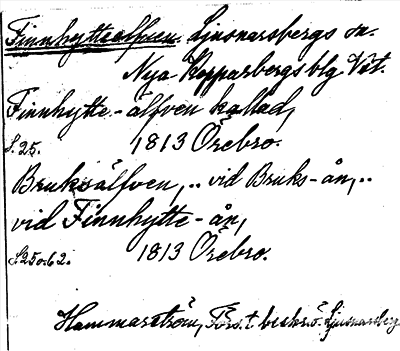 Finnhytteälfven. Ljusnarsbergs sn.
Nya Kopparbergs blg Vst.
Finnhytte-älfven kallad,
S. 25. 1813 Örebro.
Bruksälfven, .. vid Bruks-ån, ..
vid Finnhytte-ån,
S. 25 o. 62. 1813 Örebro.
Hammarström, Förs. t. beskr. ö. Ljusnarsberg